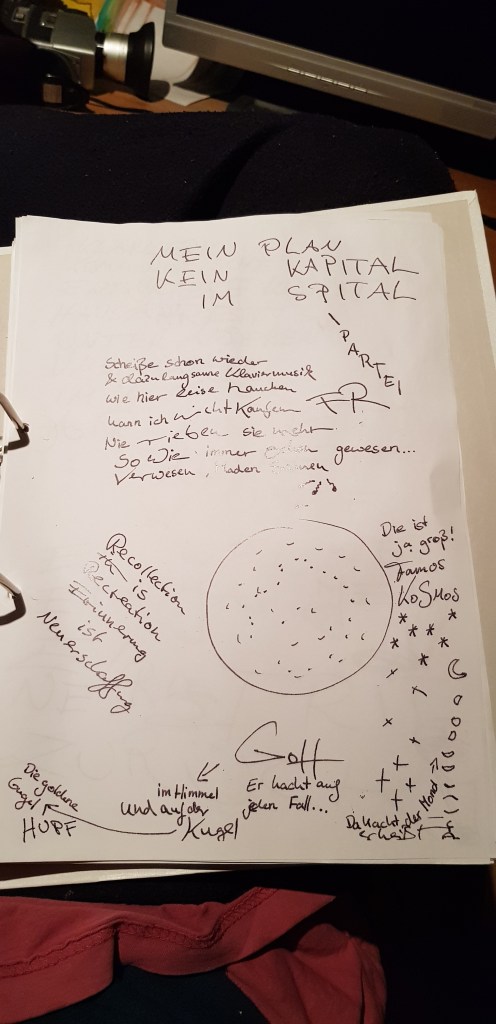 MEIN PLAN
KEIN KAPITAL
IM SPITAL
PARTEI
Scheiße schon wieder
& dazu langsame Klaviermusik
wie hier leise hauchen
kann ich nicht kaufen
FR
Nie rieben sie mehr
So wie immer schon gewesen...
Verwesen, Maden
Die ist
ja groß!
Famos
KOSMOS
Recollection
is
Recreation
Erinnerung
ist
Neuerschaffung
Gott
Er hacht auf
jeden Fall...
im Himmel
und auf der
Kugel
Die goldene
Gugel
HUPF
Da hacht der Mond
er heißt